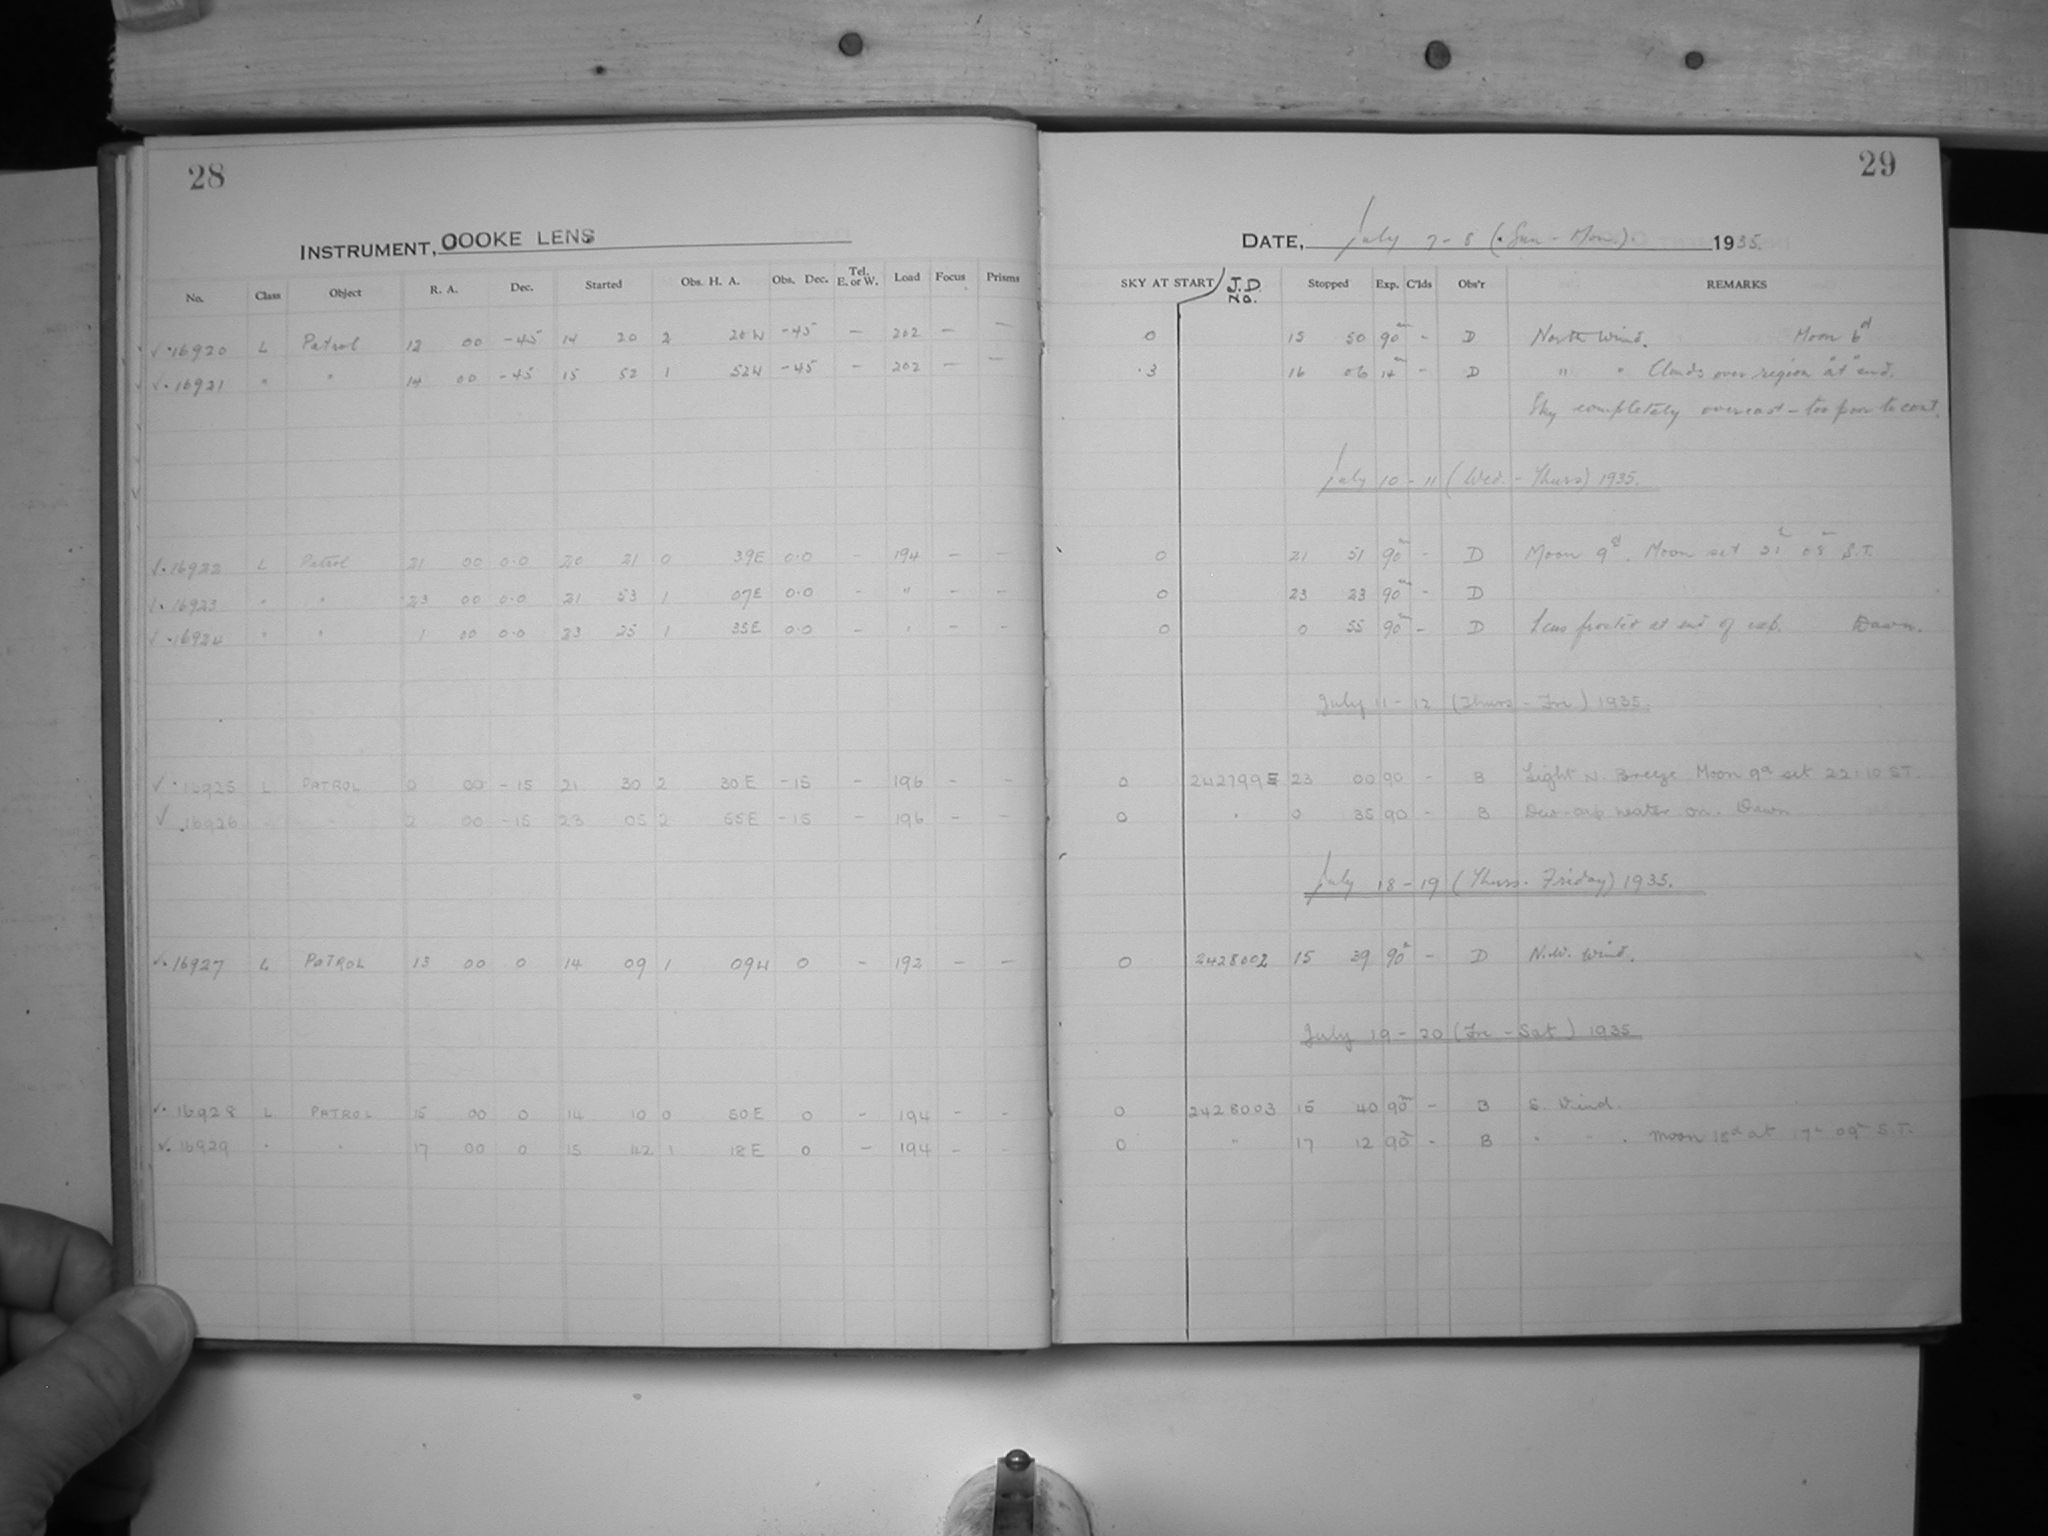 28
INSTRUMENT, COOKE LENS
No. Class Object R. A. Dec. Started Obs. H. A. Obs. Dec. Tel. E. or W. Load Focus Prisms
√ · 16920 L Patrol 12 00 -45 14 20 2 20W -45 – 202 – –
√ · 16921 " " 14 00 -45 15 52 1 52W -45 – 202 – –
√ · 16922 L Patrol 21 00 0.0 20 21 0 39E 0.0 – 194 – –
√ · 16923 " " 23 00 0.0 21 53 1 07E 0.0 – " – –
√ · 16924 " " 1 00 0.0 23 25 1 35E 0.0 – " – –
√ · 16925 L PATROL 0 00 -15 21 30 2 30E -15 – 196 – –
√ · 16926 " " 2 00 -15 23 05 2 55E -15 – 196 – –
√ · 16927 L PATROL 13 00 0 14 09 1 09W 0 – 192 – –
√ · 16928 L PATROL 15 00 0 14 10 0 50E 0 – 194 – –
√ · 16929 " " 17 00 0 15 42 1 18E 0 – 194 – –
29
DATE, July 7-8 (Sun - Mon). 1935.
SKY AT START J.D. No. Stopped Exp. C'lds Obs'r REMARKS
0 15 50 90m - D North Wind. Moon 6d
.3 16 06 14m - D " " Clouds over region "at" end.
Sky completely overcast - too poor to cont.
July 10-11 (Wed. - Thurs) 1935.
0 21 51 90m - D Moon 9d. Moon set 21h 08m S.T.
0 23 23 90m - D
0 0 55 90m - D Lens frosted at end of exp. Dawn.
July 11-12 (Thurs - Fri) 1935.
0 2427995 23 00 90 - B Light N. Breeze Moon 9d set 22:10 ST.
0 " 0 35 90 - B Dew cap heater on. Dawn
July 18-19 (Thurs. Friday) 1935.
0 2428002 15 39 90m - D N.W. wind.
July 19-20 (Fri - Sat) 1935
0 2428003 15 40 90m - B S. Wind.
0 " 17 12 90m - B " " . Moon 18d at 17h 09m S.T.